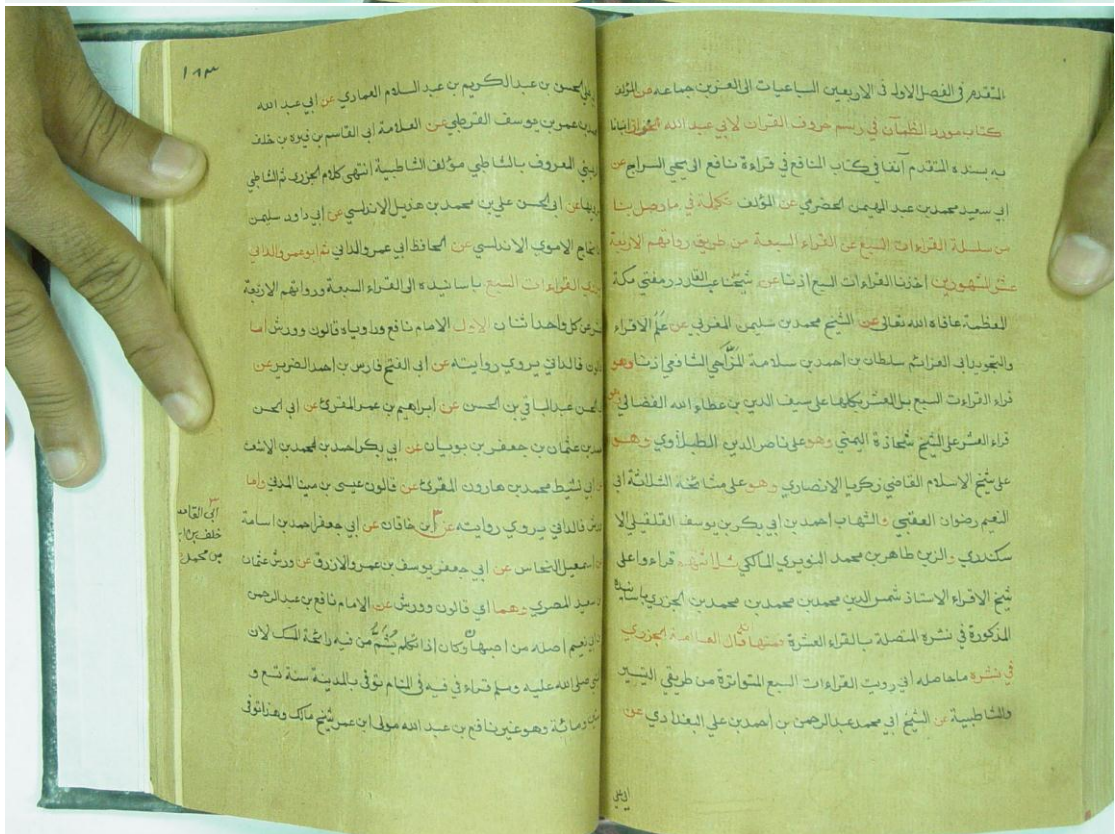 المتقدم في الفصل الاول في الاربعين السباعيات الى العز بن جماعه عن المؤلف
كتاب مورد الظمآن في رسم حروف القرآن لابي عبد الله الخراز انبانا
به بسنده المتقدم آنفا في كتاب المنافع في قراءة نافع الى يحيى السراج عن
ابي سعيد محمد بن عبد المهيمن الحضرمي عن المؤلف تكملة في ما وصل بنا
من سلسلة القراءات السبع عن القراء السبعة من طريق رواتهم الاربعة
عشر المشهورين اخذنا القراءات السبع اذنا عن شيخنا عبد القادر مفتي مكة
المعظمة عافاه الله تعالى عن الشيخ محمد بن سليمن المغربي عن علم الاقراء
والتجويد ابي العزائم سلطان بن احمد بن سلامة المزّاحي الشافعي اذنا وهو
قراء القراءت السبع بل العشر بكمالها على سيف الدين بن عطاء الله الفضالي وهو
قراء العشر على الشيخ شحاذة اليمني وهو على ناصر الدين الطبلاوي وهو
على شيخ الاسلام القاضي زكريا الانصاري وهو على مشائخه الثلاثة ابي
النعيم رضوان العقبي والشهاب احمد بن ابي بكر بن يوسف القلقيلي الا
سكندري والزين طاهر بن محمد النويري المالكي ثلاثتهم قراءوا على
شيخ الاقراء الاستاذ شمس الدين محمد بن محمد بن محمد بن الجزري باسانيده
المذكورة في نشره المتصلة بالقراء العشرة فمنها قال العلامة الجزري
في نشره ما حاصله اني رويت القراءات السبع المتواترة من طريقي التيسير
والشاطبية عن الشيخ ابي محمد عبد الرحمن بن احمد بن علي البغدادي عن
ابي علي
١٨٣
علي الحسن بن عبد الكريم بن عبد السلام الغماري عن ابي عبد الله
بن عمر بن يوسف القرطبي عن العلامة ابي القاسم بن فيره بن خلف
الرعيني المعروف بالشاطبي مؤلف الشاطبية انتهى كلام الجزري ثم الشاطبي
يرويها عن ابي الحسن علي بن محمد بن هذيل الاندلسي عن ابي داود سليمن
بن نجاح الاموي الاندلسي عن الحافظ ابي عمرو الداني ثم ابو عمرو الداني
يروي القراءات السبع باسانيده الى القراء السبعة ورواتهم الاربعة
عشر عن كل واحد اثنان الاول الامام نافع وراوياه قالون وورش اما
قالون فالداني يروي روايته عن ابي الفتح فارس بن احمد الضرير عن
ابي الحسن عبد الباقي بن الحسن عن ابراهيم بن عمر المقرئ عن ابي الحسن
احمد بن عثمان بن جعفر بن بويان عن ابي بكر احمد بن محمد بن الاشعث
عن ابي نشيط محمد بن هارون المقرئ عن قالون عيسى بن مينا المدني واما
ورش فالداني يروي روايته عن ابن خاقان عن ابي جعفر احمد بن اسامة
عن اسمعيل النحاس عن ابي جعفر يوسف بن عمرو الازرق عن ورش عثمان
بن سعيد المصري وهما اي قالون وورش عن الامام نافع بن عبد الرحمن
بن ابي نعيم اصله من اصبهان وكان اذا تكلم يُشَمُّ من فيه رائحة المسك لان
النبي صلى الله عليه وسلم قراء في فيه في المنام توفي بالمدينة سنة تسع و
ستين ومائة وهو غير نافع بن عبد الله مولى ابن عمر شيخ مالك وهذا توفي
ابي القاسم
خلف بن
بن محمد